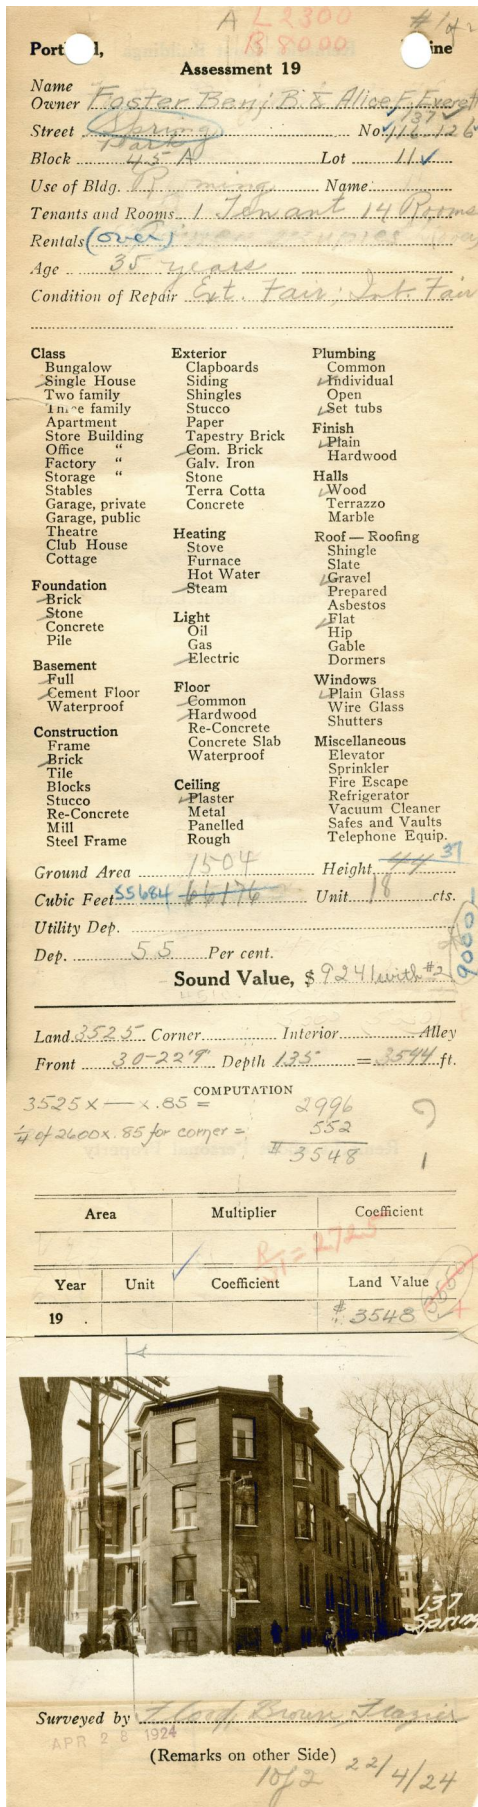 A L 2300 #1 of 2
B 8000
Portland, Maine
Assessment 19
Name
Owner Foster Benj B. & Alice F. Everett
137
Street Spring No. 116-126
Park
Block 45 A Lot 11
Use of Bldg. Rooming Name
Tenants and Rooms 1 Tenant 14 Rooms
Rentals (over)
Age 35 years
Condition of Repair Ext. Fair; Int. Fair
Class
Bungalow
Single House
Two family
Three family
Apartment
Store Building
Office "
Factory "
Storage "
Stables
Garage, private
Garage, public
Theatre
Club House
Cottage
Foundation
Brick
Stone
Concrete
Pile
Basement
Full
Cement Floor
Waterproof
Construction
Frame
Brick
Tile
Blocks
Stucco
Re-Concrete
Mill
Steel Frame
Exterior
Clapboards
Siding
Shingles
Stucco
Paper
Tapestry Brick
Com. Brick
Galv. Iron
Stone
Terra Cotta
Concrete
Heating
Stove
Furnace
Hot Water
Steam
Light
Oil
Gas
Electric
Floor
Common
Hardwood
Re-Concrete
Concrete Slab
Waterproof
Ceiling
Plaster
Metal
Panelled
Rough
Plumbing
Common
Individual
Open
Set tubs
Finish
Plain
Hardwood
Halls
Wood
Terrazzo
Marble
Roof — Roofing
Shingle
Slate
Gravel
Prepared
Asbestos
Flat
Hip
Gable
Dormers
Windows
Plain Glass
Wire Glass
Shutters
Miscellaneous
Elevator
Sprinkler
Fire Escape
Refrigerator
Vacuum Cleaner
Safes and Vaults
Telephone Equip.
Ground Area 1504 Height 44 37
Cubic Feet 55684 66176 Unit 18 cts.
Utility Dep.
Dep. 55 Per cent.
9080-
Sound Value, $ 9241 with #2
Land 3525 Corner Interior Alley
Front 30-22'9" Depth 135 = 3544 ft.
COMPUTATION
3525 x — x .85 = 2996
1/4 of 2600 x .85 for corner = 552
$ 3548
Area Multiplier Coefficient
= 2725
Year Unit Coefficient Land Value
19 . $ 3548
137
Spring
Surveyed by Flood, Brown, Frazier
APR 28 1924
(Remarks on other Side)
1 of 2 22/4/24